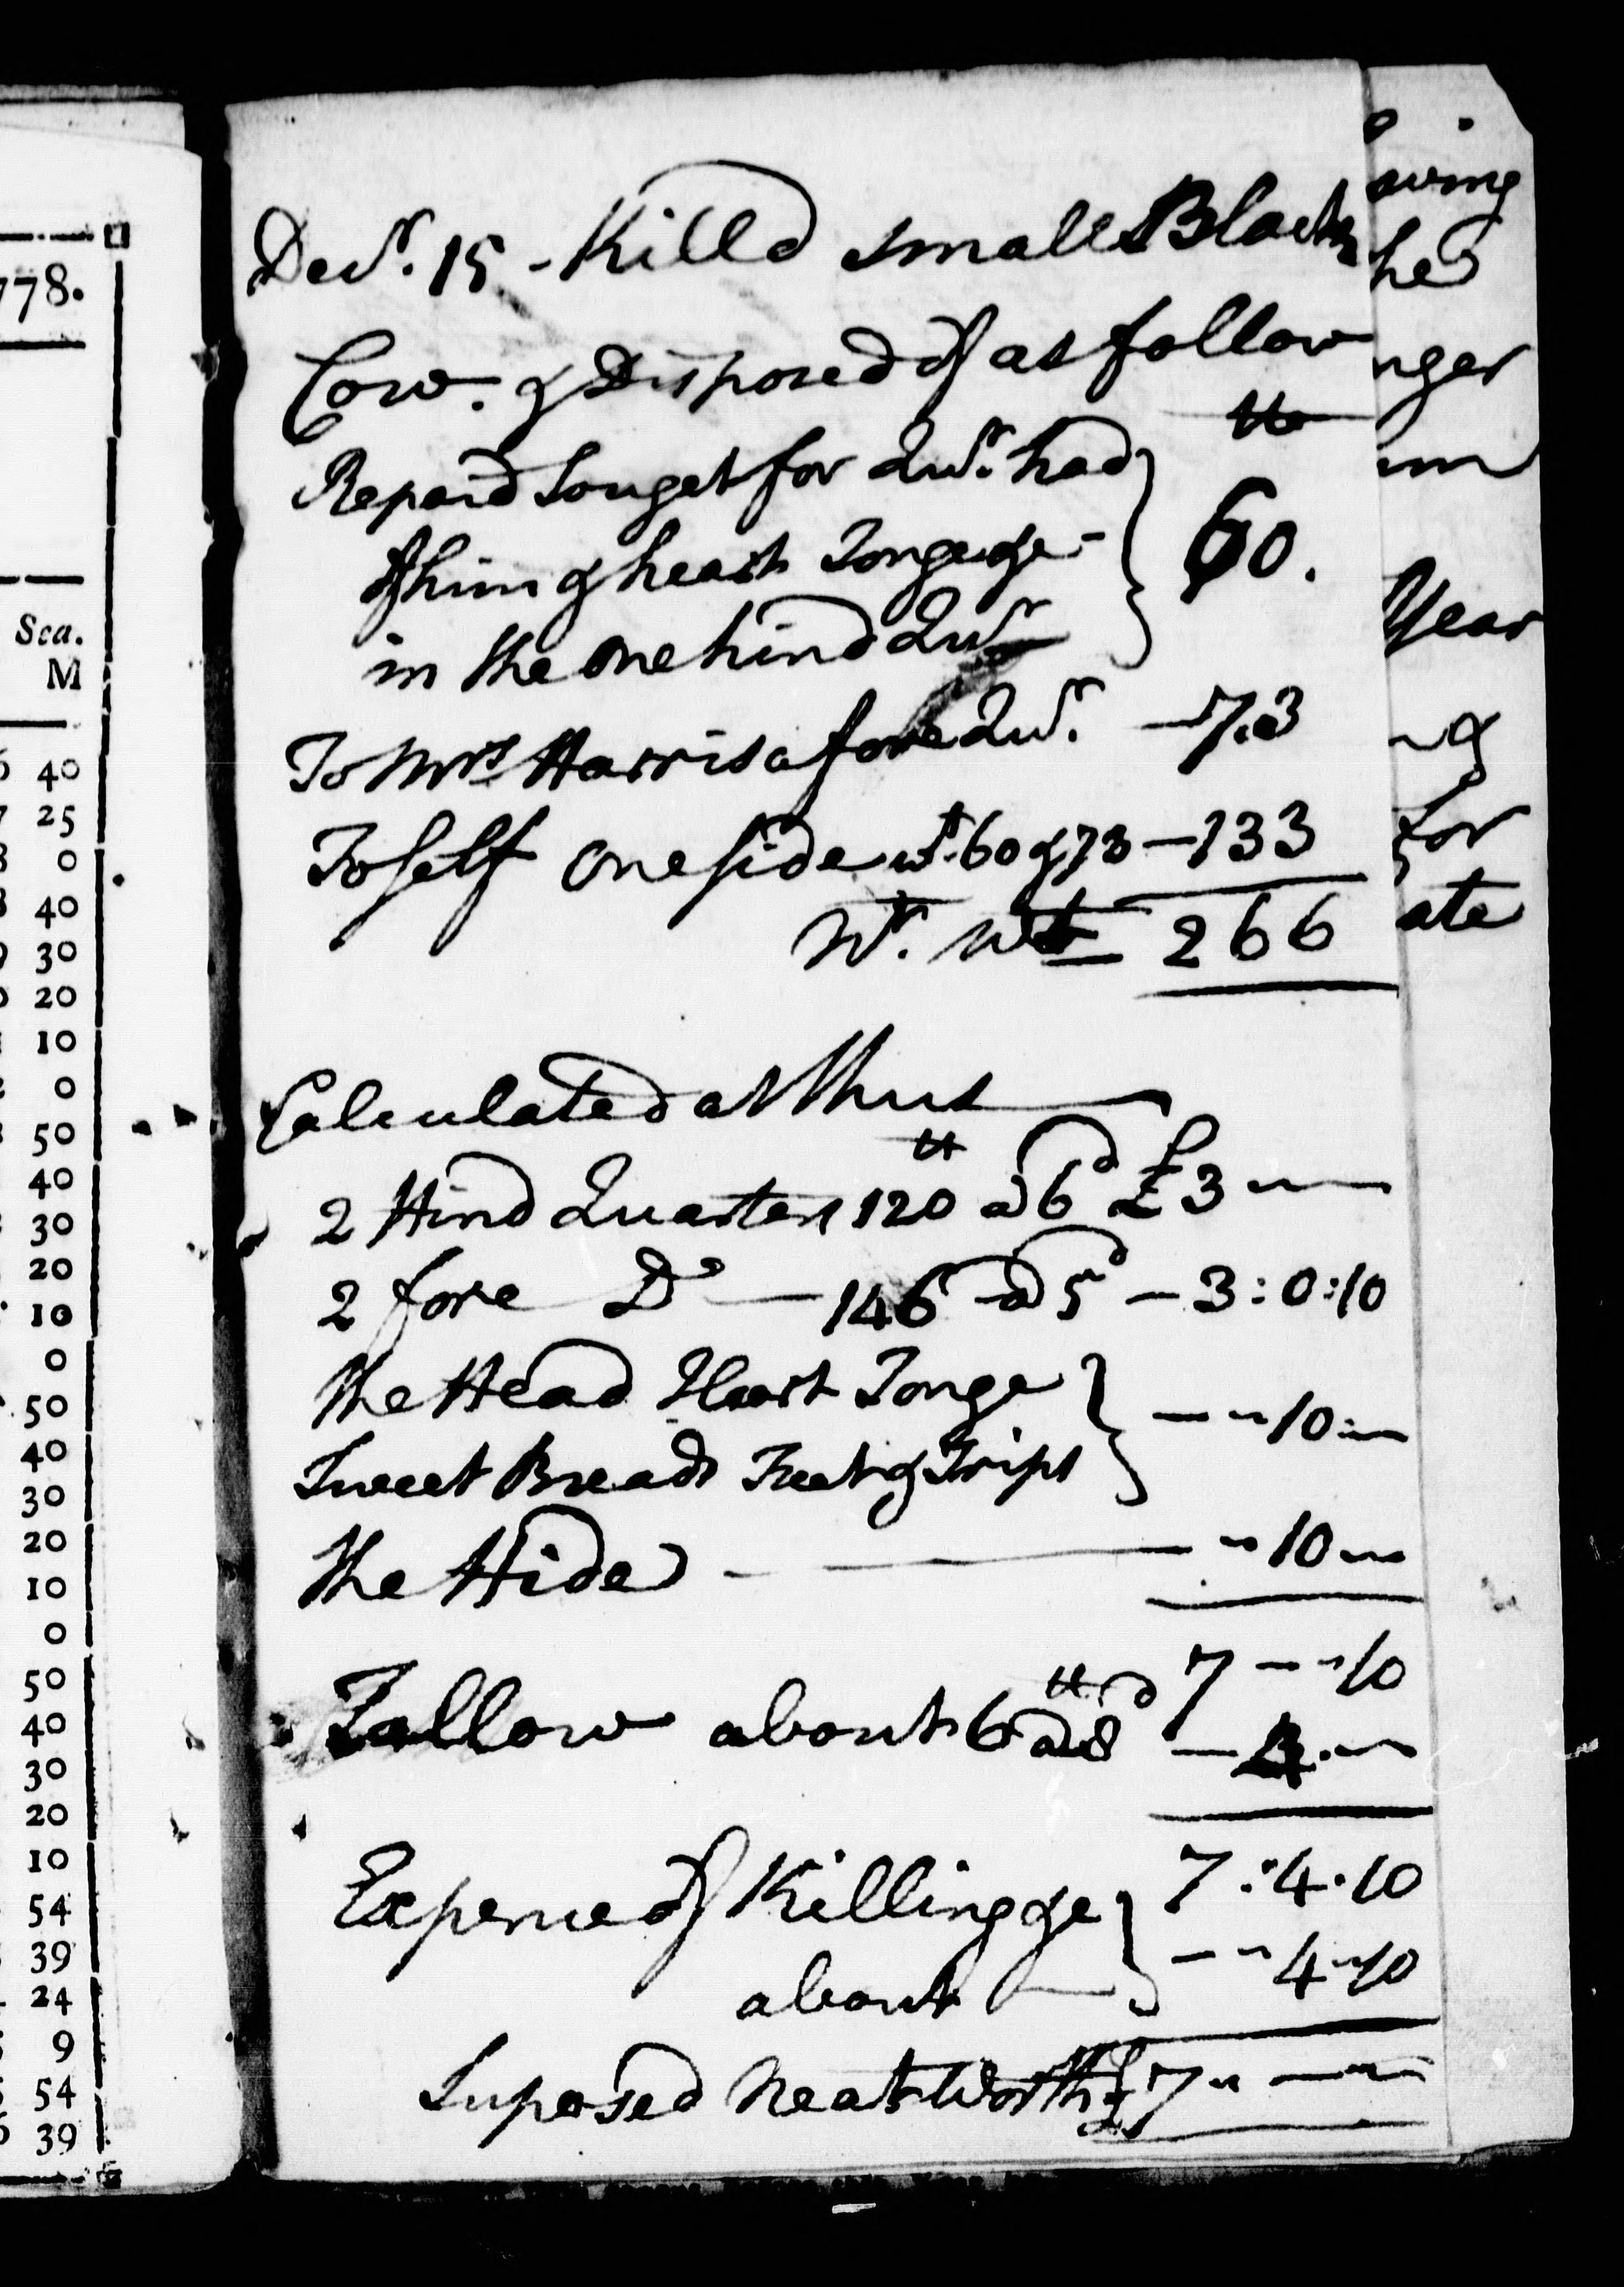 778.
Sea.
M
40
25
0
40
30
20
10
0
50
40
30
20
10
0
50
40
30
20
10
0
50
40
30
20
10
54
39
24
9
54
39
Decr. 15 - Killd small Black
Cow. & Disposed of as follow
lb
Repaid Souget for Qur. had
of him & heart Tonge &c -
in the one hind Qur
60.
To Mrs Harris a fore Qur. - 73
To Self one side wt. 60 & 73 - 133
Nt. Wt 266
Calculated as Thus
2 Hind Quarters 120 lb a 6d £3 - -
2 fore Do - 146 - a 5d - 3 : 0 : 10
The Head Heart Tonge
Sweet Breads Feet & Trips
- - 10 : -
The Hide - - - 10 -
7 - - 10
Tallow about 6 lb a 8d - 4 . -
7 : 4 . 10
Expence of Killing &c
about - - - 4 - 10
Suposed Neat Worth £7 - -
owing
he
nger
um
Year
&
for
ate